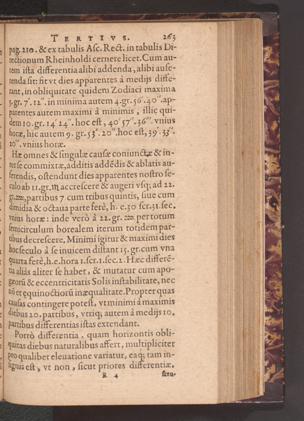 TERTIVS. 263
pag. 210. & ex tabulis Asc. Rect. in tabulis Di-
rectionum Rheinholdi cernere licet. Cum au-
tem ista differentia alibi addenda, alibi aufe-
renda sit: fit vt dies apparentes à medijs diffe-
rant, in obliquitate quidem Zodiaci maxima
5. gr. 7'. 12". in minima autem 4. gr. 56'. 40". ap-
parentes autem maximi à minimis, illic qui-
dem 10. gr. 14'. 24". hoc est, 40'. 57". 36"'. vnius
horæ, hic autem 9. gr. 53'. 20". hoc est, 39'. 33".
20"'. vnius horæ.
Hæ omnes & singulæ causæ coniunctæ & in-
ter se commixtæ, additis addendis & ablatis au-
ferendis, ostendunt dies apparentes nostro se-
culo ab 11. gr. ♏ accrescere & augeri vsq; ad 22.
gr. ♒, partibus 7 cum tribus quintis, siue cum
dimidia & octaua parte ferè, h. e. 30 scr. 11. sec.
vnius horæ: inde verò à 22. gr. ♒ per totum
semicirculum borealem iterum totidem par-
tibus decrescere. Minimi igitur & maximi dies
hoc seculo à se inuicem distant 15. gr. cum vna
quarta ferè, h. e. hora 1. scr. 1. sec. 2. Hæc differẽ-
tia aliàs aliter se habet, & mutatur cum apo-
georũ & eccentricitatis Solis instabilitate, nec
nõ et equinoctiorũ inæqualitate. Propter quas
causas contingere potest, vt minimi à maximis
diebus 20. partibus, vtriq; autem à medijs 10.
partibus differentias istas extendant.
Porrò differentia, quam horizontis obli-
quitas diebus naturalibus affert, multipliciter
pro qualibet eleuatione variatur, eaq; tam in-
signis est, vt non, sicut priores differentiæ,
R 4